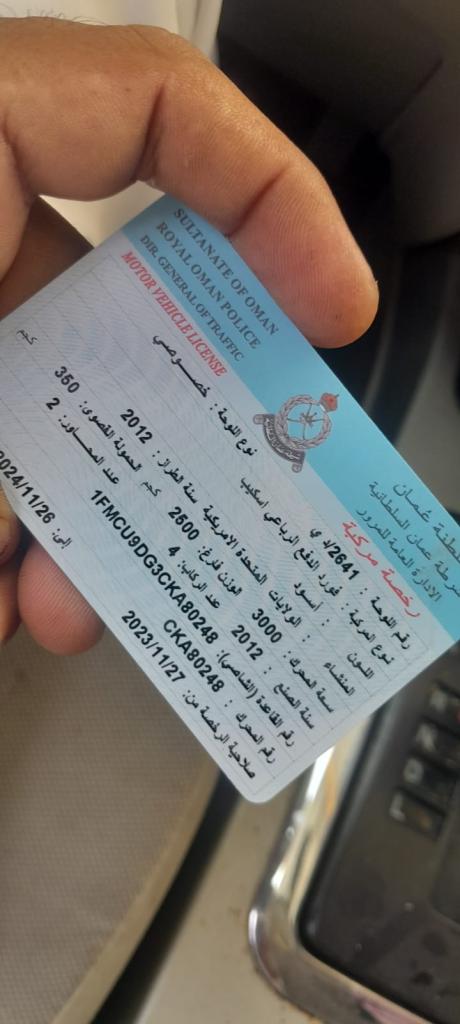 SULTANATE OF OMAN
ROYAL OMAN POLICE
DIR. GENERAL OF TRAFFIC
MOTOR VEHICLE LICENSE
سلطنة عمان
شرطة عمان السلطانية
الادارة العامة للمرور
رخصة مركبة
رقم اللوحة : 2641/د ي نوع اللوحة : خصوصي
نوع المركبة : فورد الدفع الرباعي اسكيب
اللون : أسود
المنشاء : الولايات المتحدة الامريكية سنة الطراز : 2012
سعة المحرك : 3000 الوزن فارغ: 2500 كجم الحمولة القصوى: 350 كجم
سنة الصنع : 2012 عدد الركاب: 4 عدد المحاور: 2
رقم القاعدة (الشاصي): 1FMCU9DG3CKA80248
رقم المحرك : CKA80248
صلاحية الرخصة من: 2023/11/27 إلى: 2024/11/26